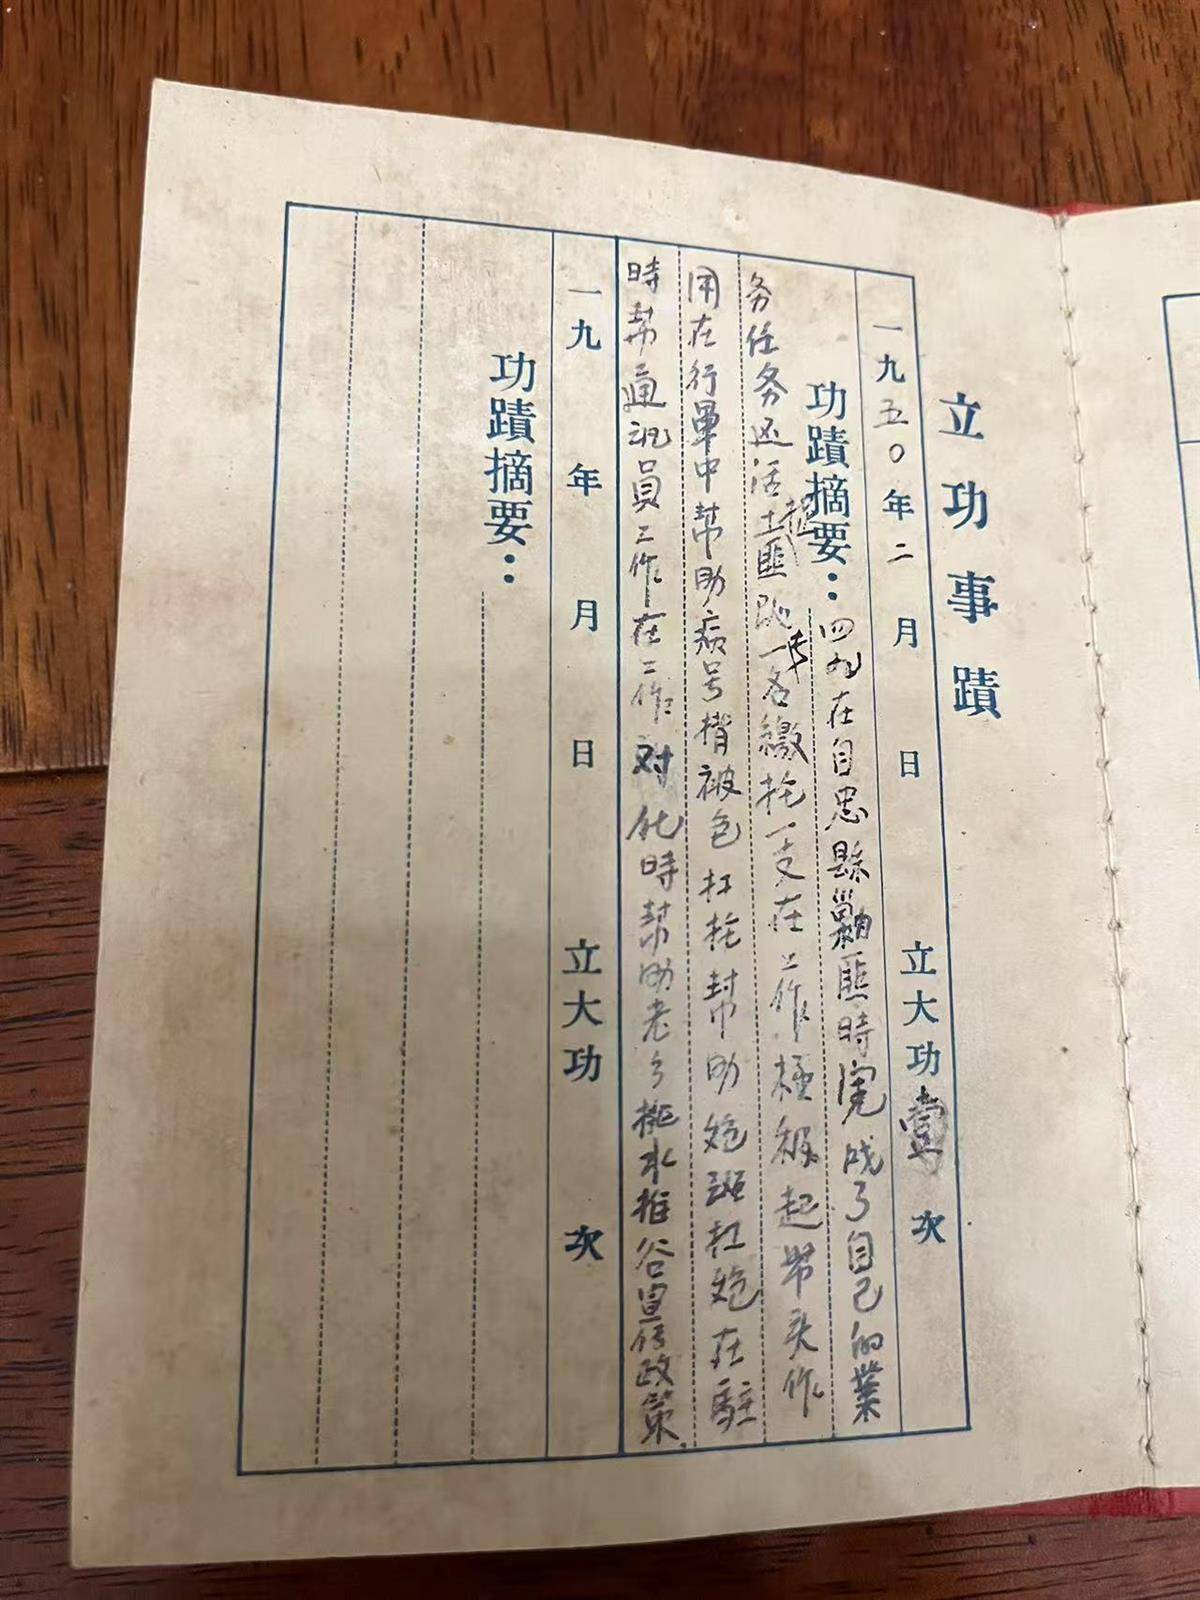 立功事蹟
一九五〇年二月 日 立大功壹次
功蹟摘要：四九在自忠縣剿匪時完成了自己的業
务任务还活捉土匪一名繳枪一支在工作極积起带头作
用在行軍中帮助病号揹被包扛枪帮助炮班扛炮在駐
時帮通訊員工作在工作对化時帮助老乡挑水推谷宣传政策
一九 年 月 日 立大功 次
功蹟摘要：